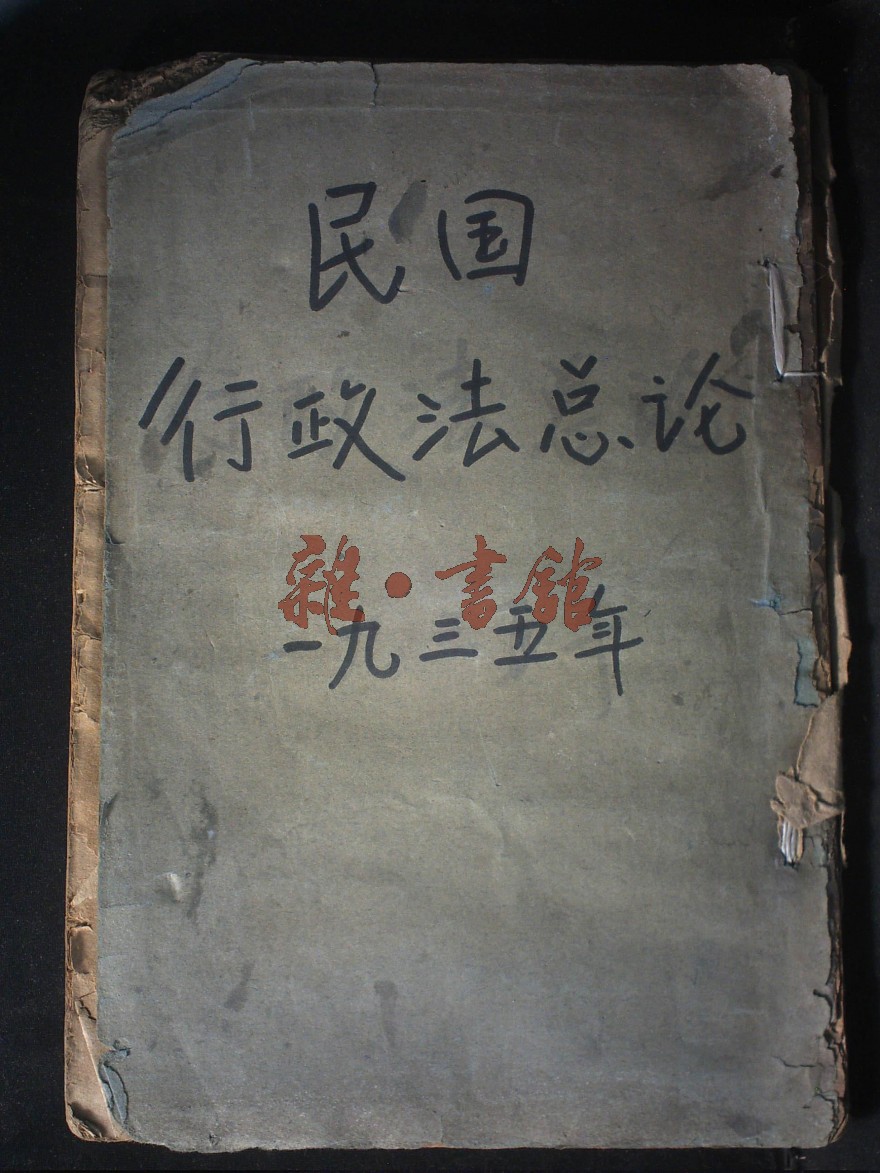 民国
行政法总论
雜·書館
一九三五年